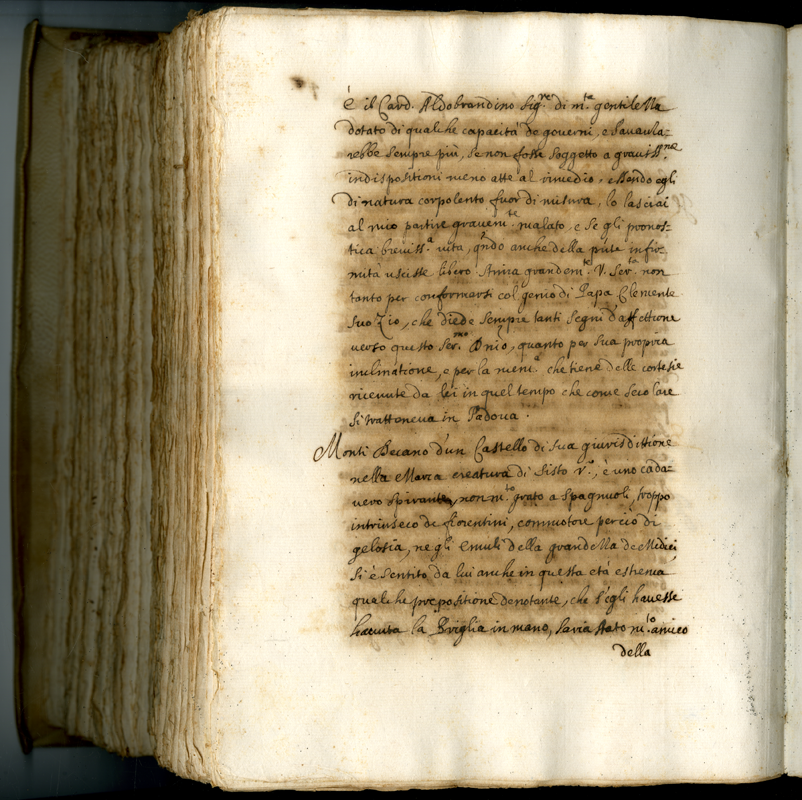 è il Card. Aldobrandino Sig.re di m.ta gentilezza
dotato di qualche capacità de governi, e l'hauula-
rebbe sempre più, se non fosse soggetto a grauiss.me
indispositioni meno atte al rimedio, essendo egli
di natura corpolento fuor di misura, lo lasciai
al mio partire grauem.te malato, e se gli pronos-
tica breuiss.a uita, q.ndo anche della pnte infir-
mità uscisse libero. Ama grandem.te V. Ser.tà non
tanto per conformarsi col genio di Papa Clemente
suo Zio, che diede sempre tanti segni d'affettione
uerso questo Ser.mo Dnio, quanto per sua propria
inclinatione, e per la mem.a che tiene delle cortesie
riceuute da lei in quel tempo che come secolare
si tratteneua in Padoua.
Monti Decano d'un Castello di sua giurisdittione
nella Marca creatura di Sisto V.o, è uno cada-
uero spirante, non m.to grato a Spagnuoli, troppo
intrinseco de fiorentini, commotore perciò di
gelosia, ne gli emuli della grandezza de Medici,
si è sentito da lui anche in questa età estrema
qualche propositione denotante, che s'egli hauesse
hauuta la Briglia in mano, saria stato m.to amico
della